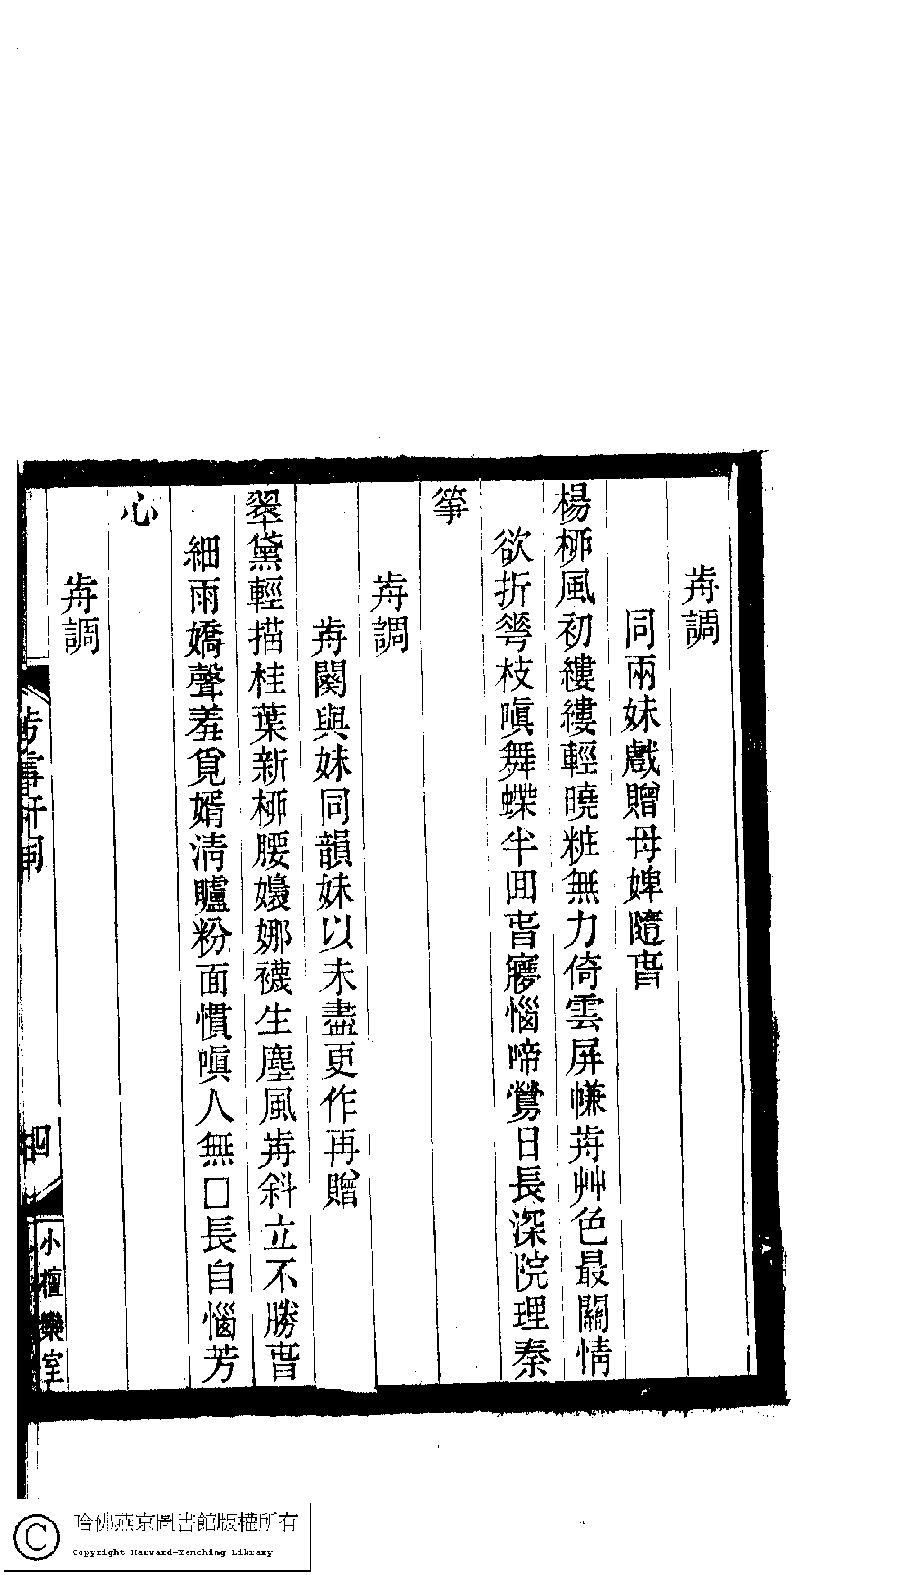 歬調
同兩妹戲贈母婢隨旾
楊桺風初縷縷輕曉粧無力倚雲屏㡘歬艸色最關情
欲折花枝嗔舞蝶半回旾㝱惱啼鶯日長深院理秦
箏
歬調
歬闋與妹同韻妹以未盡更作再贈
翠黛輕描桂葉新桺腰嬝娜襪生塵風歬斜立不勝旾
細雨嬌聲羞覓婿清矑粉面慣嗔人無□長自惱芳
心
歬調
四
小檀欒室
哈佛燕京圖書館版權所有
Copyright Harvard-Yenching Library